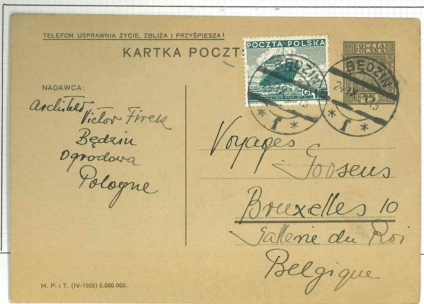 TELEFON USPRAWNIA ŻYCIE, ZBLIŻA I PRZYŚPIESZA!
KARTKA POCZT
POCZTA POLSKA
POCZTA
POLSKA
BĘDZIN
BĘDZIN
15
NADAWCA:
Architekt
Victor
Będzin
Ogrodowa
Pologne
Voyages
Goosens
Bruxelles 10
Gallerie du Roi
Belgique
M. P. i T. (IV-1935) 5.000.000.